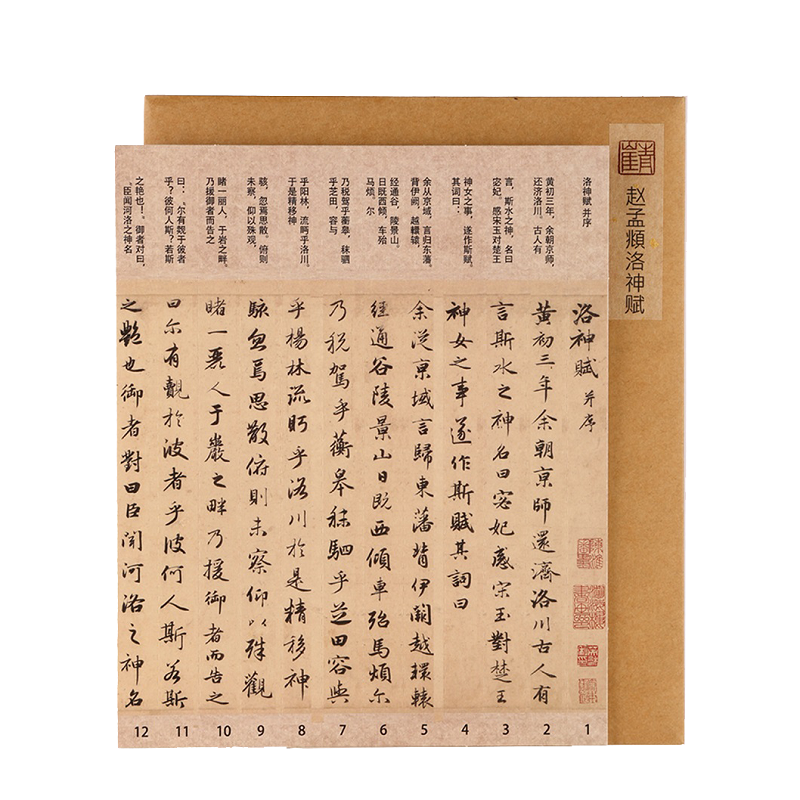 赵孟頫洛神赋
洛神赋 并序
黄初三年,余朝京师,
还济洛川。古人有
言,斯水之神,名曰
宓妃。感宋玉对楚王
神女之事,遂作斯赋。
其词曰:
余从京域,言归东藩。
背伊阙,越轘辕,
经通谷,陵景山。
日既西倾,车殆
马烦。尔
乃税驾乎蘅皋,秣驷
乎芝田,容与
乎阳林,流眄乎洛川。
于是精移神
骇,忽焉思散。俯则
未察,仰以殊观,
睹一丽人,于岩之畔。
乃援御者而告之
曰:“尔有觌于彼者
乎?彼何人斯?若斯
之艳也!”御者对曰,
“臣闻河洛之神名
洛神賦 并序
黄初三年余朝京師還濟洛川古人有
言斯水之神名曰宓妃感宋玉對楚王
神女之事遂作斯賦其詞曰
余從京域言歸東藩背伊闕越轘轅
經通谷陵景山日既西傾車殆馬煩尔
乃税駕乎蘅皋秣駟乎芝田容與
乎楊林流眄乎洛川於是精移神
駭忽焉思散俯則未察仰以殊觀
睹一麗人于巖之畔乃援御者而告之
曰尔有覿於彼者乎彼何人斯若斯
之艷也御者對曰臣聞河洛之神名
12 11 10 9 8 7 6 5 4 3 2 1